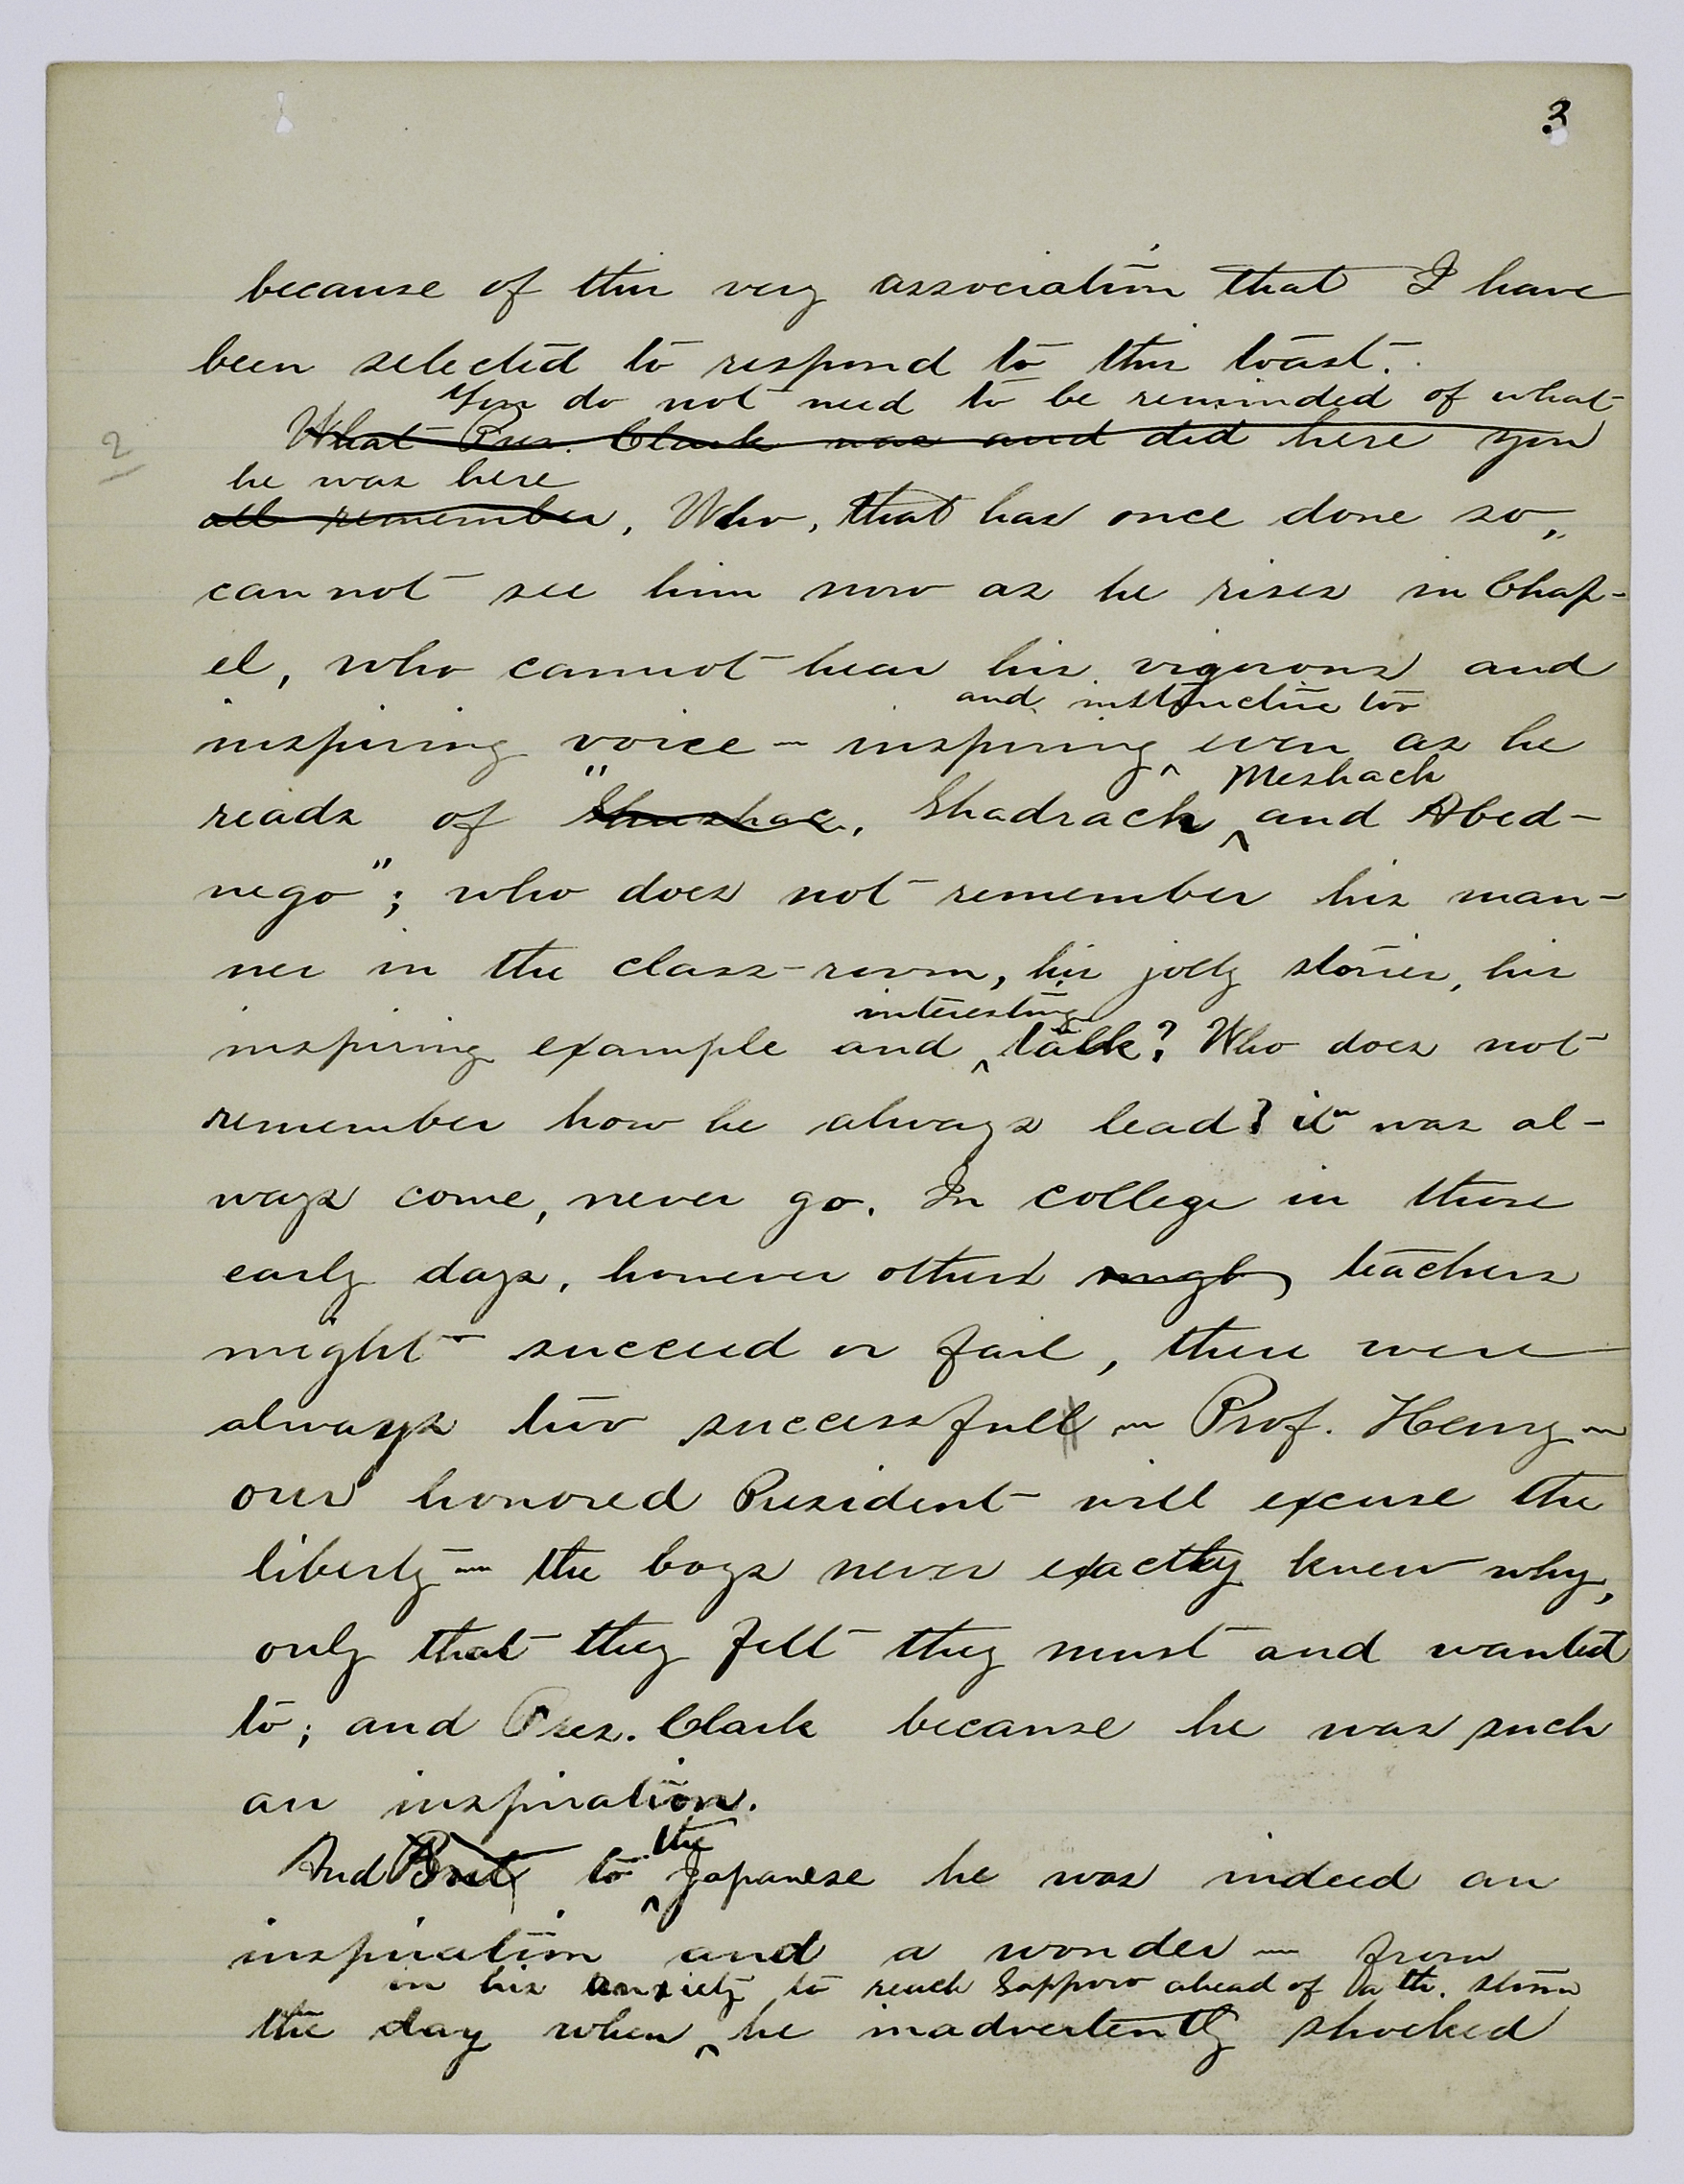 3
because of this very association that I have
been selected to respond to this toast.
You do not need to be reminded of what
What Pres. Clark was and did here you
2
he was here
all remember, Who, that has once done so,
cannot see him now as he rises in Chap-
el, who cannot hear his vigorous and
and instructive too
inspiring voice - inspiring ^ even as he
Meshach
reads of "Shushac, Shadrach ^ and Abed-
nego"; who does not remember his man-
ner in the class-room, his jolly stories, his
interesting
inspiring example and ^ talk? Who does not
remember how he always lead? it was al-
ways come, never go. In college in those
early days, however others might teachers
might succeed or fail, there were
always two successfull - Prof. Henry -
our honored President will excuse the
liberty - the boys never exactly knew why,
only that they felt they must and wanted
to; and Pres. Clark because he was such
an inspiration.
the
And But to ^ Japanese he was indeed an
inspiration and a wonder - from
in his anxiety to reach Sapporo ahead of a th. storm
the day when ^ he inadvertently shocked